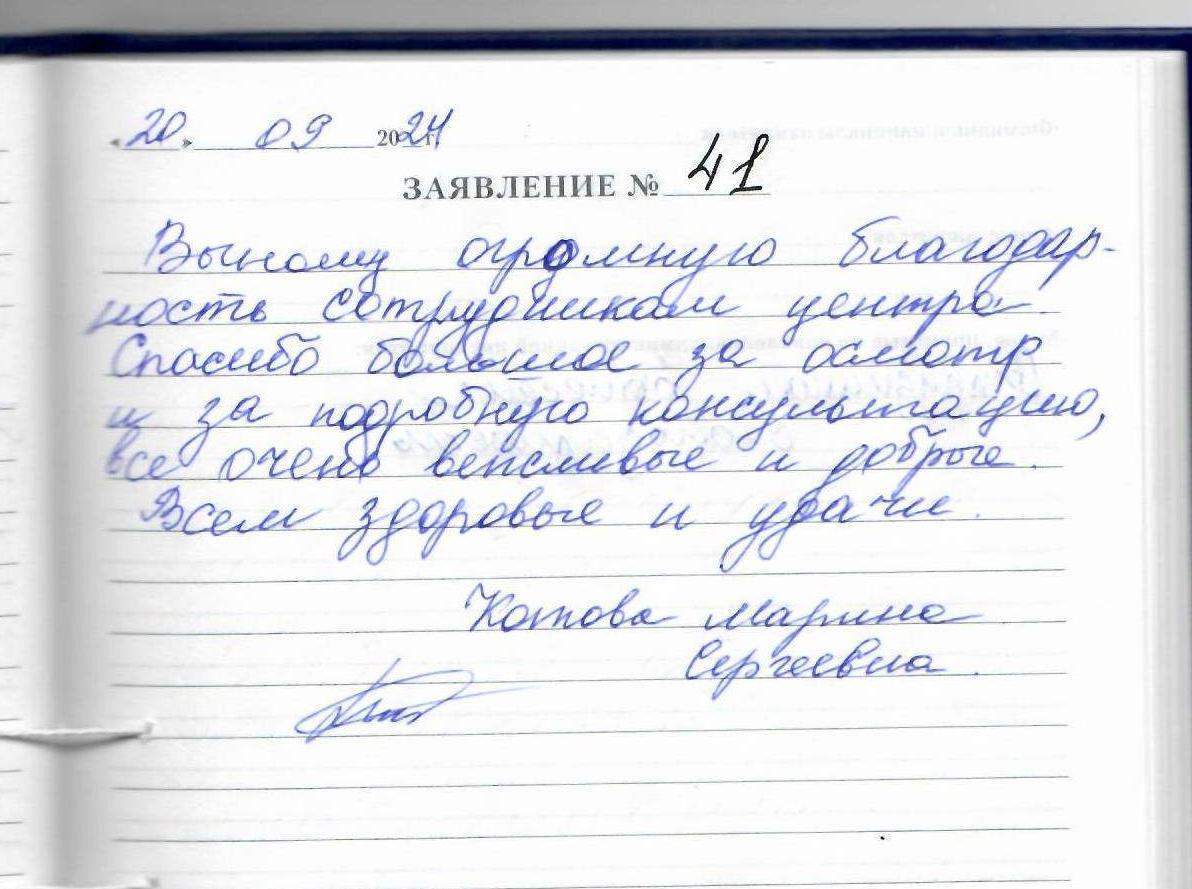 « 20 » 09 2024 г.
ЗАЯВЛЕНИЕ № 41
Выношу огромную благодар-
ность сотрудникам центра.
Спасибо большое за осмотр
и за подробную консультацию,
все очень вежливые и добрые.
Всем здоровье и удачи.
Котова Марина
Сергеевна.